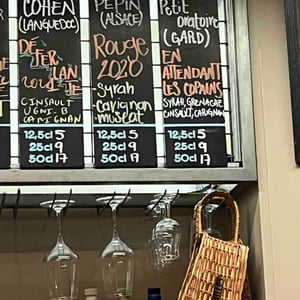 COHEN
(LANGUEDOC)
DÉ
JE TER
LAN JE
2021
CINSAULT
UGNI. B
CARIGNAN
12,5cl 5
25cl 9
50cl 17
PEPIN
(ALSACE)
Rouge
2020
Syrah
Carignan
muscat
12,5cl 5
25cl 9
50cl 17
Petit
oratoire
(GARD)
EN
ATTENDANT
LES COPAINS
SYRAH, GRENACHE
CINSAULT, CARIGNAN
12,5cl 5
25cl 9
50cl 17